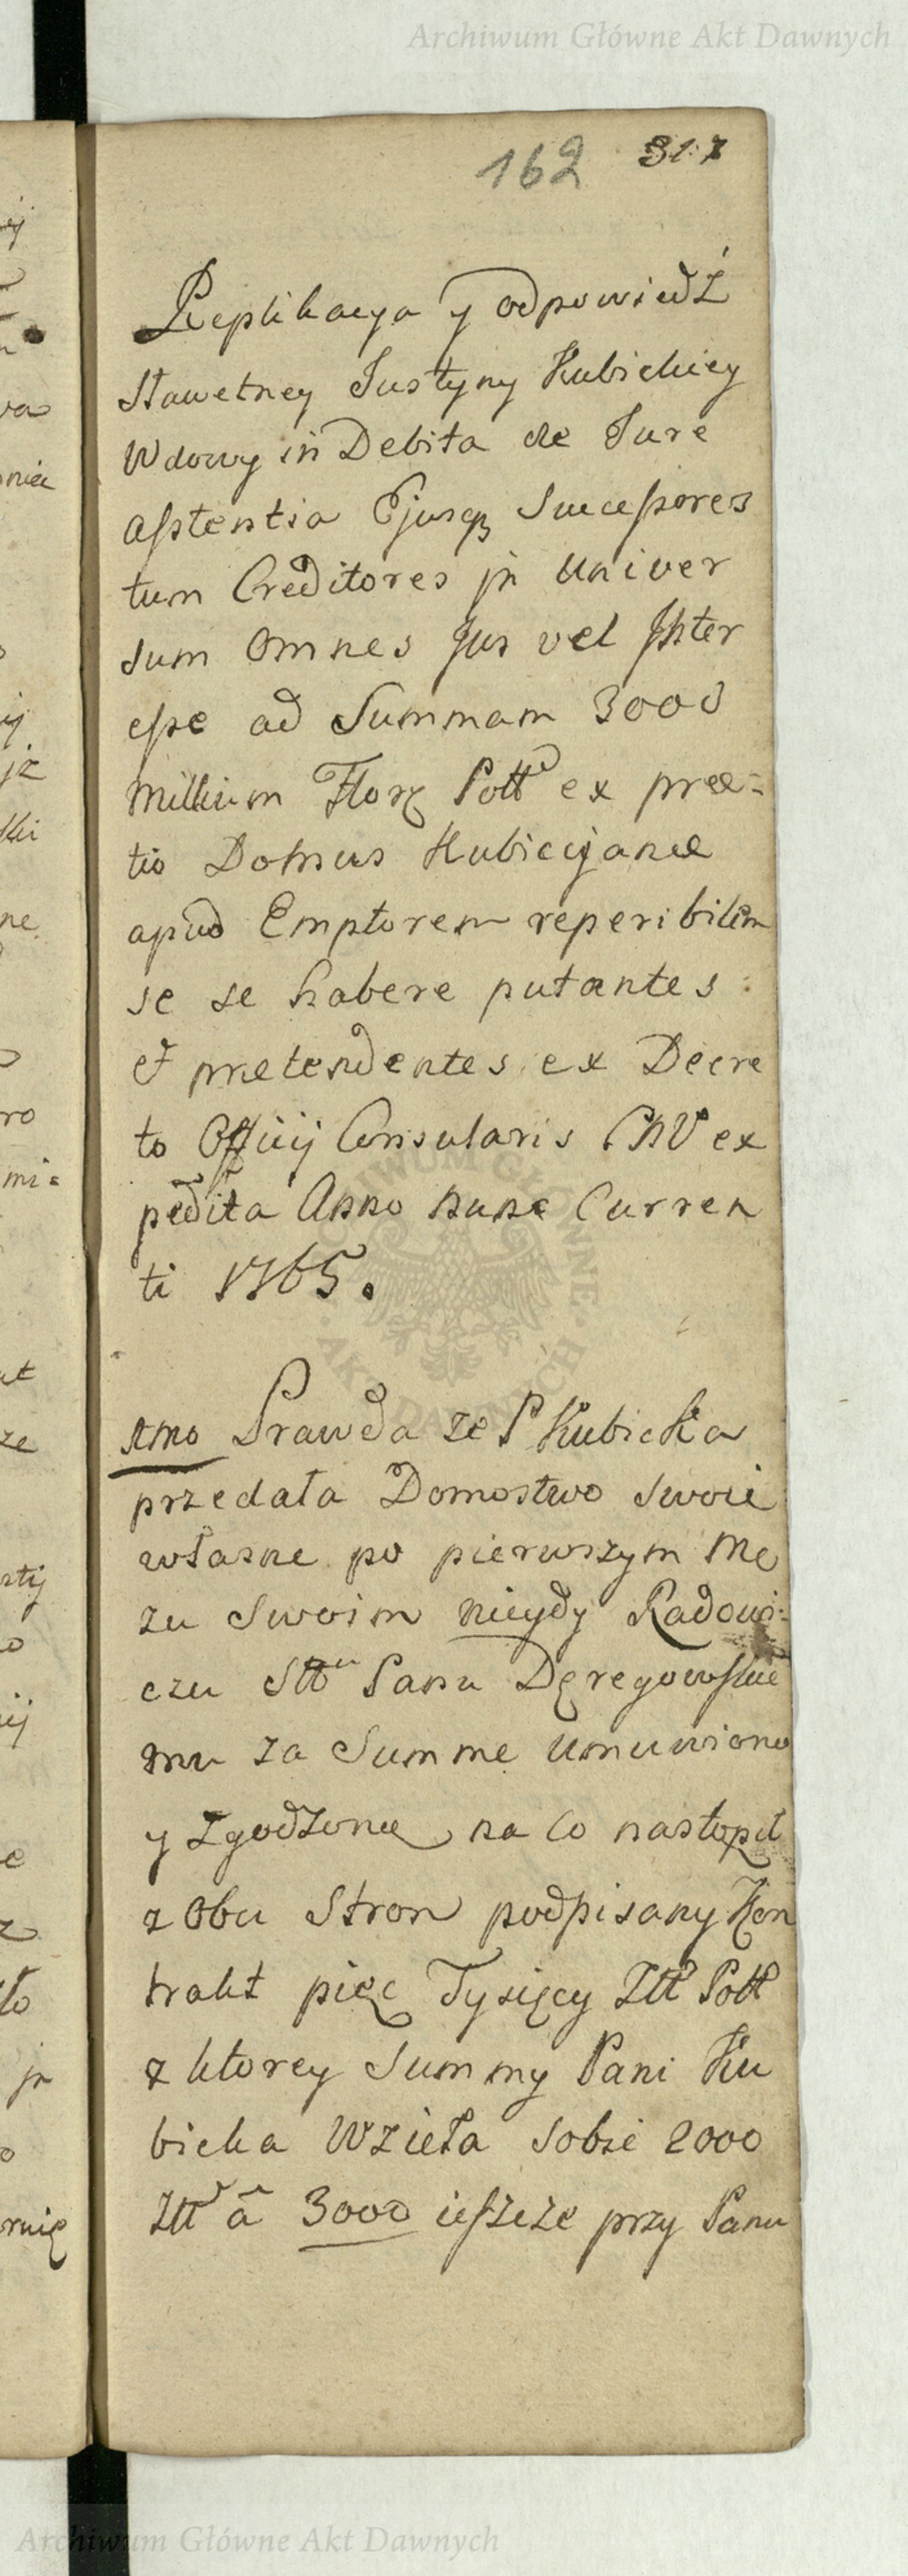 Archiwum Główne Akt Dawnych
162 317
Replikacya y odpowiedź
Sławetney Justyny Kubickiey
Wdowy in Debita de Jure
aſstentia Ejusq Succeſsores
tum Creditores in Univer
sum Omnes Jus vel Inter
eſse ad Summam 3000
millium Flor Poll ex pree=
tio Domus Kubicijanae
apud Emptorem reperibilem
se se habere putantes
et pretendentes ex Decre
to Officij Consularis CNV ex
pedita Anno nunc Curren
ti 1765.
1mo Prawda ze P Kubicka
przedała Domostwo swoie
własne po pierwszym Mę
zu Swoim niegdy Radowi=
czu Sttu Panu Deręgowskie
mu za Summe umuwiono
y zgodzone na co nastopił
z Obu Stron podpisany Kon
trakt pięc Tysięcy Ztt Poll
z ktorey Summy Pani Ku
bicka Wzieła sobie 2000
Ztt a 3000 ieſzcze przy Panu
ARCHIWUM GŁÓWNE AKT DAWNYCH
Archiwum Główne Akt Dawnych